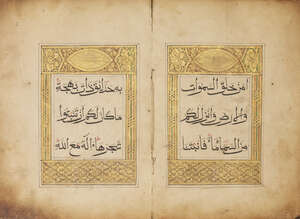 امن خلق السموات
والارض وانزل لكم
من السما ما فانبتنا
به حدائق ذات بهجة
ما كان لكم ان تنبتوا
شجرها اله مع الله